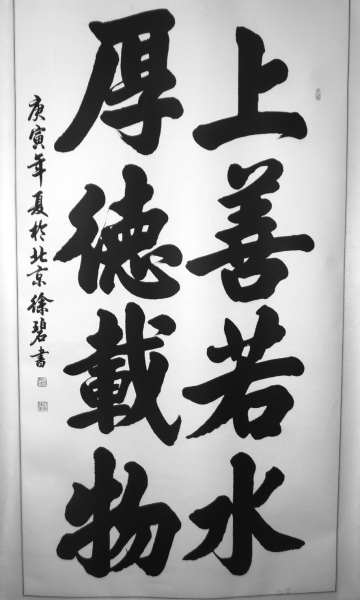 上善若水
厚德載物
庚寅年夏於北京徐碧書